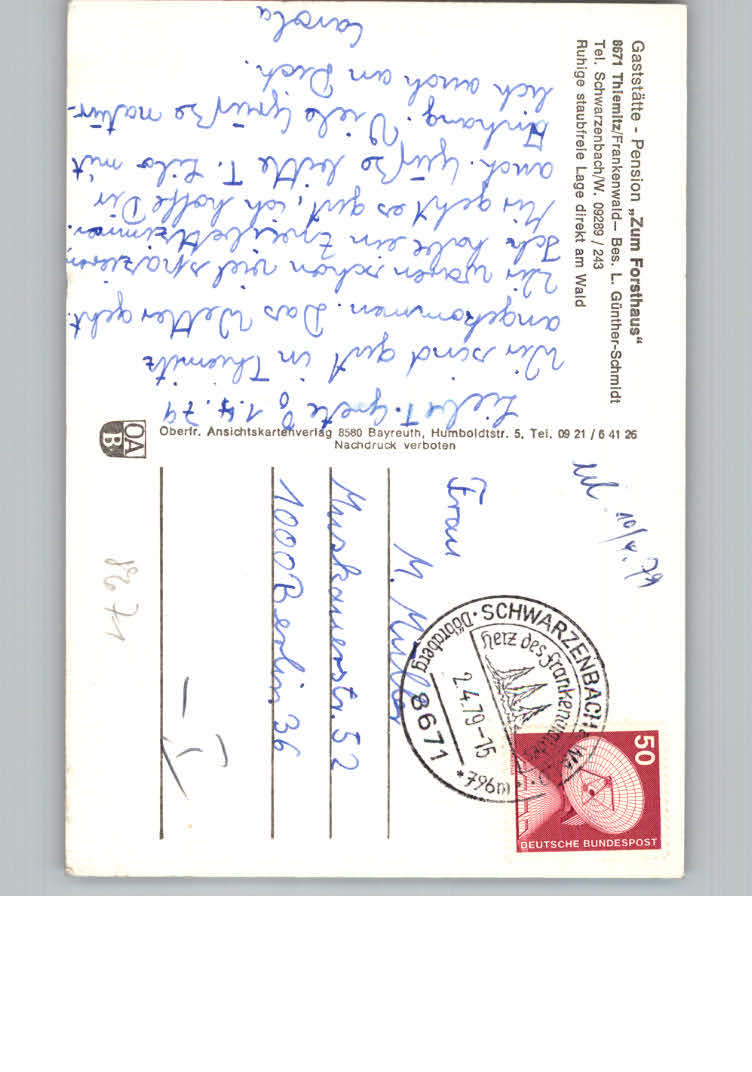 Gaststätte - Pension „Zum Forsthaus“
8671 Thiemitz/Frankenwald— Bes. L. Günther-Schmidt
Tel. Schwarzenbach/W. 09289 / 243
Ruhige staubfreie Lage direkt am Wald
Liebe T. Grete 1.4.79
Wir sind gut in Thiemitz
angekommen. Das Wetter geht.
Wir waren schon viel spazieren,
Ich habe ein Zweibettzimmer.
Mir geht es gut, ich hoffe Dir
auch. Grüße bitte T. Lilo mit
Anhang. Viele Grüße natür-
lich auch an Dich.
Carola
OA
B
Oberfr. Ansichtskartenverlag 8580 Bayreuth, Humboldtstr. 5, Tel. 09 21 / 6 41 26
Nachdruck verboten
10/4. 79
Frau
M. Müller
Muskauerstr. 52
1000 Berlin 36
8671
SCHWARZENBACH a. Wald
Herz des Frankenwaldes
2.4.79-15
*796m
8671
Döbraberg
50
DEUTSCHE BUNDESPOST